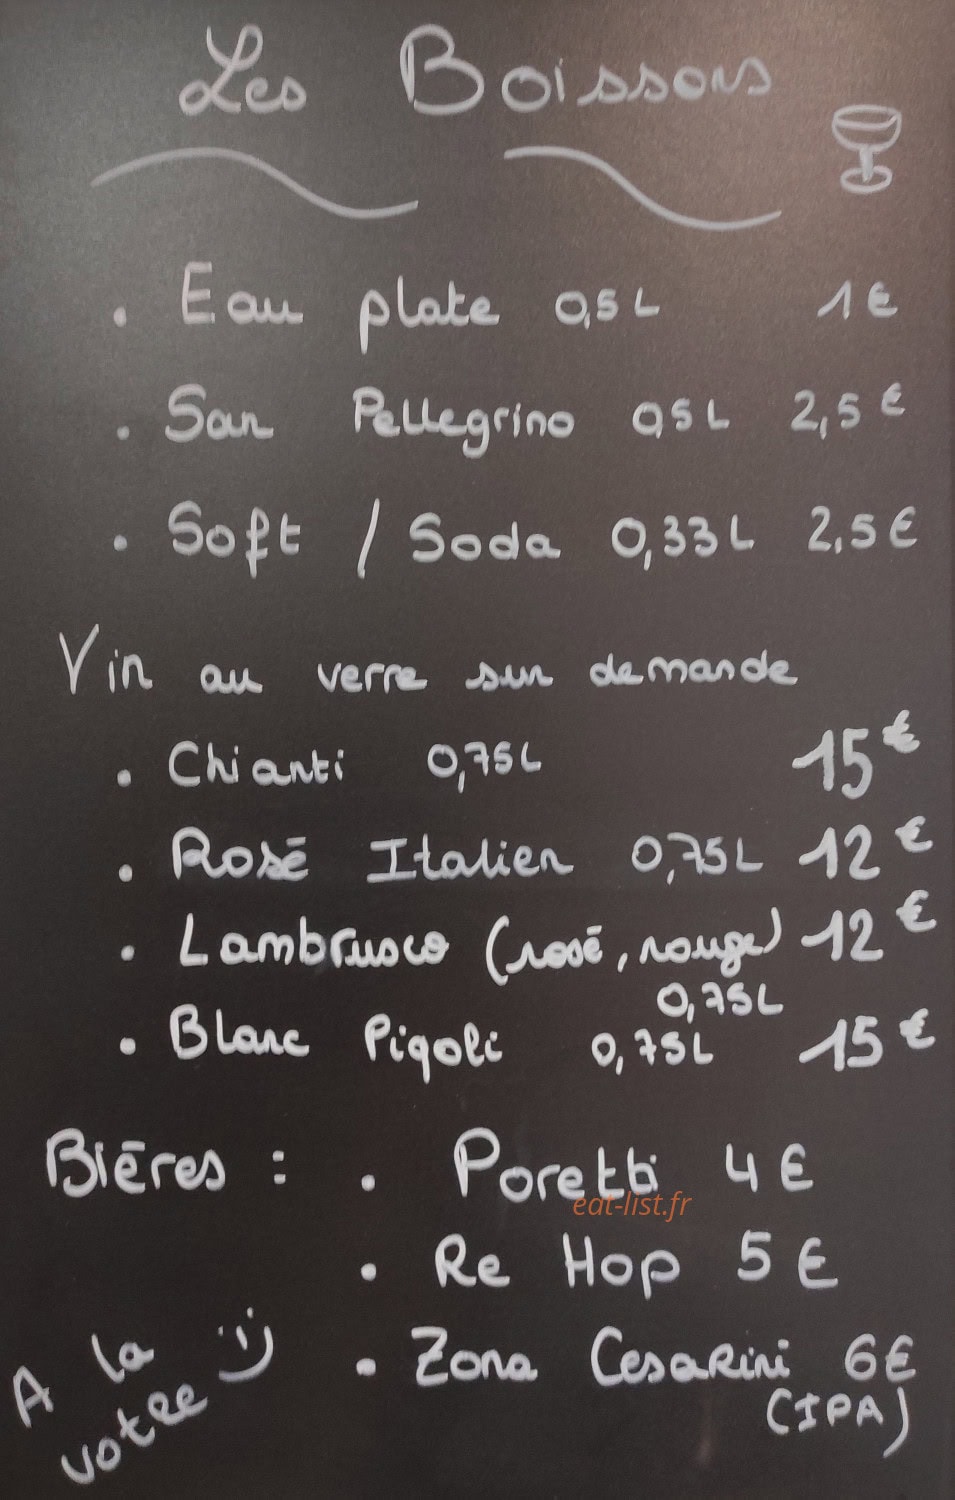 Les Boissons
. Eau plate 0,5L 1€
. San Pellegrino 0,5L 2,5€
. Soft / Soda 0,33L 2,5€
Vin au verre sur demande
. Chianti 0,75L 15€
. Rosé Italien 0,75L 12€
. Lambrusco (rosé, rouge) 12€
0,75L
. Blanc Pigoli 0,75L 15€
Bières : . Poretti 4€
eat-list.fr
. Re Hop 5€
. Zona Cesarini 6€
(IPA)
A la
votre :)